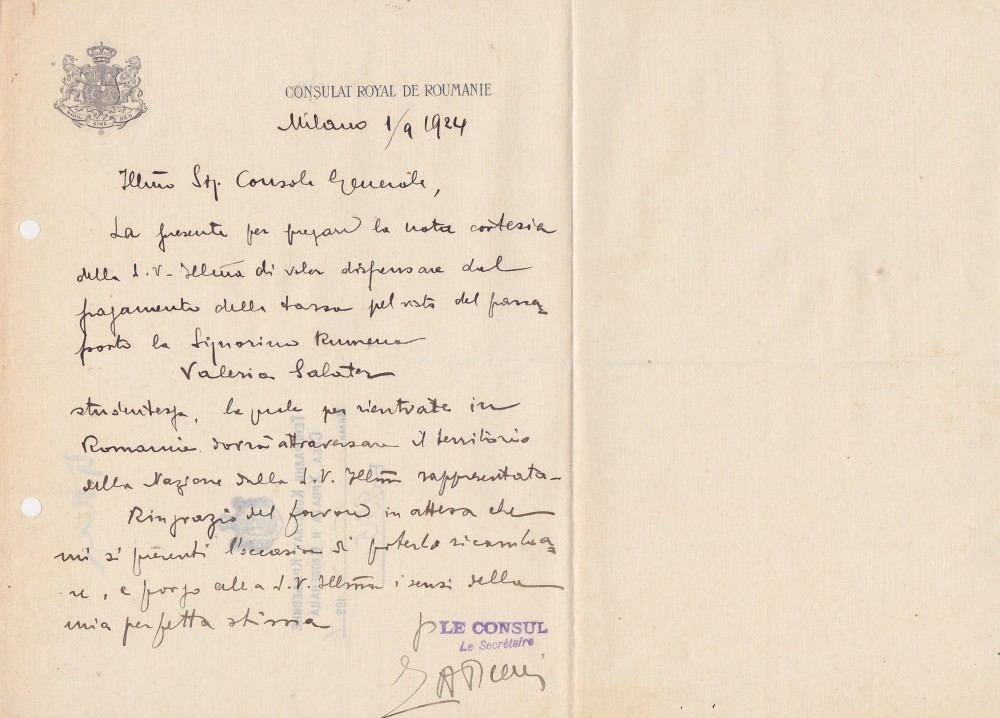 CONSULAT ROYAL DE ROUMANIE
Milano 1/9 1924
Illmo Sig. Console Generale,
La presente per pregare la nota cortesia
della S.V. Illma di voler dispensare dal
pagamento della tassa pel visto del passa=
porto la Signorina Rumena
Valeria
studentessa, la quale per rientrare in
Romania dovrà attraversare il territorio
della Nazione dalla S.V. Illma rappresentata-
Ringrazio del favore in attesa che
mi si presenti l'occasione di poterlo ricambia=
re, e porgo alla S.V. Illma i sensi della
mia perfetta stima
p LE CONSUL
Le Secrétaire